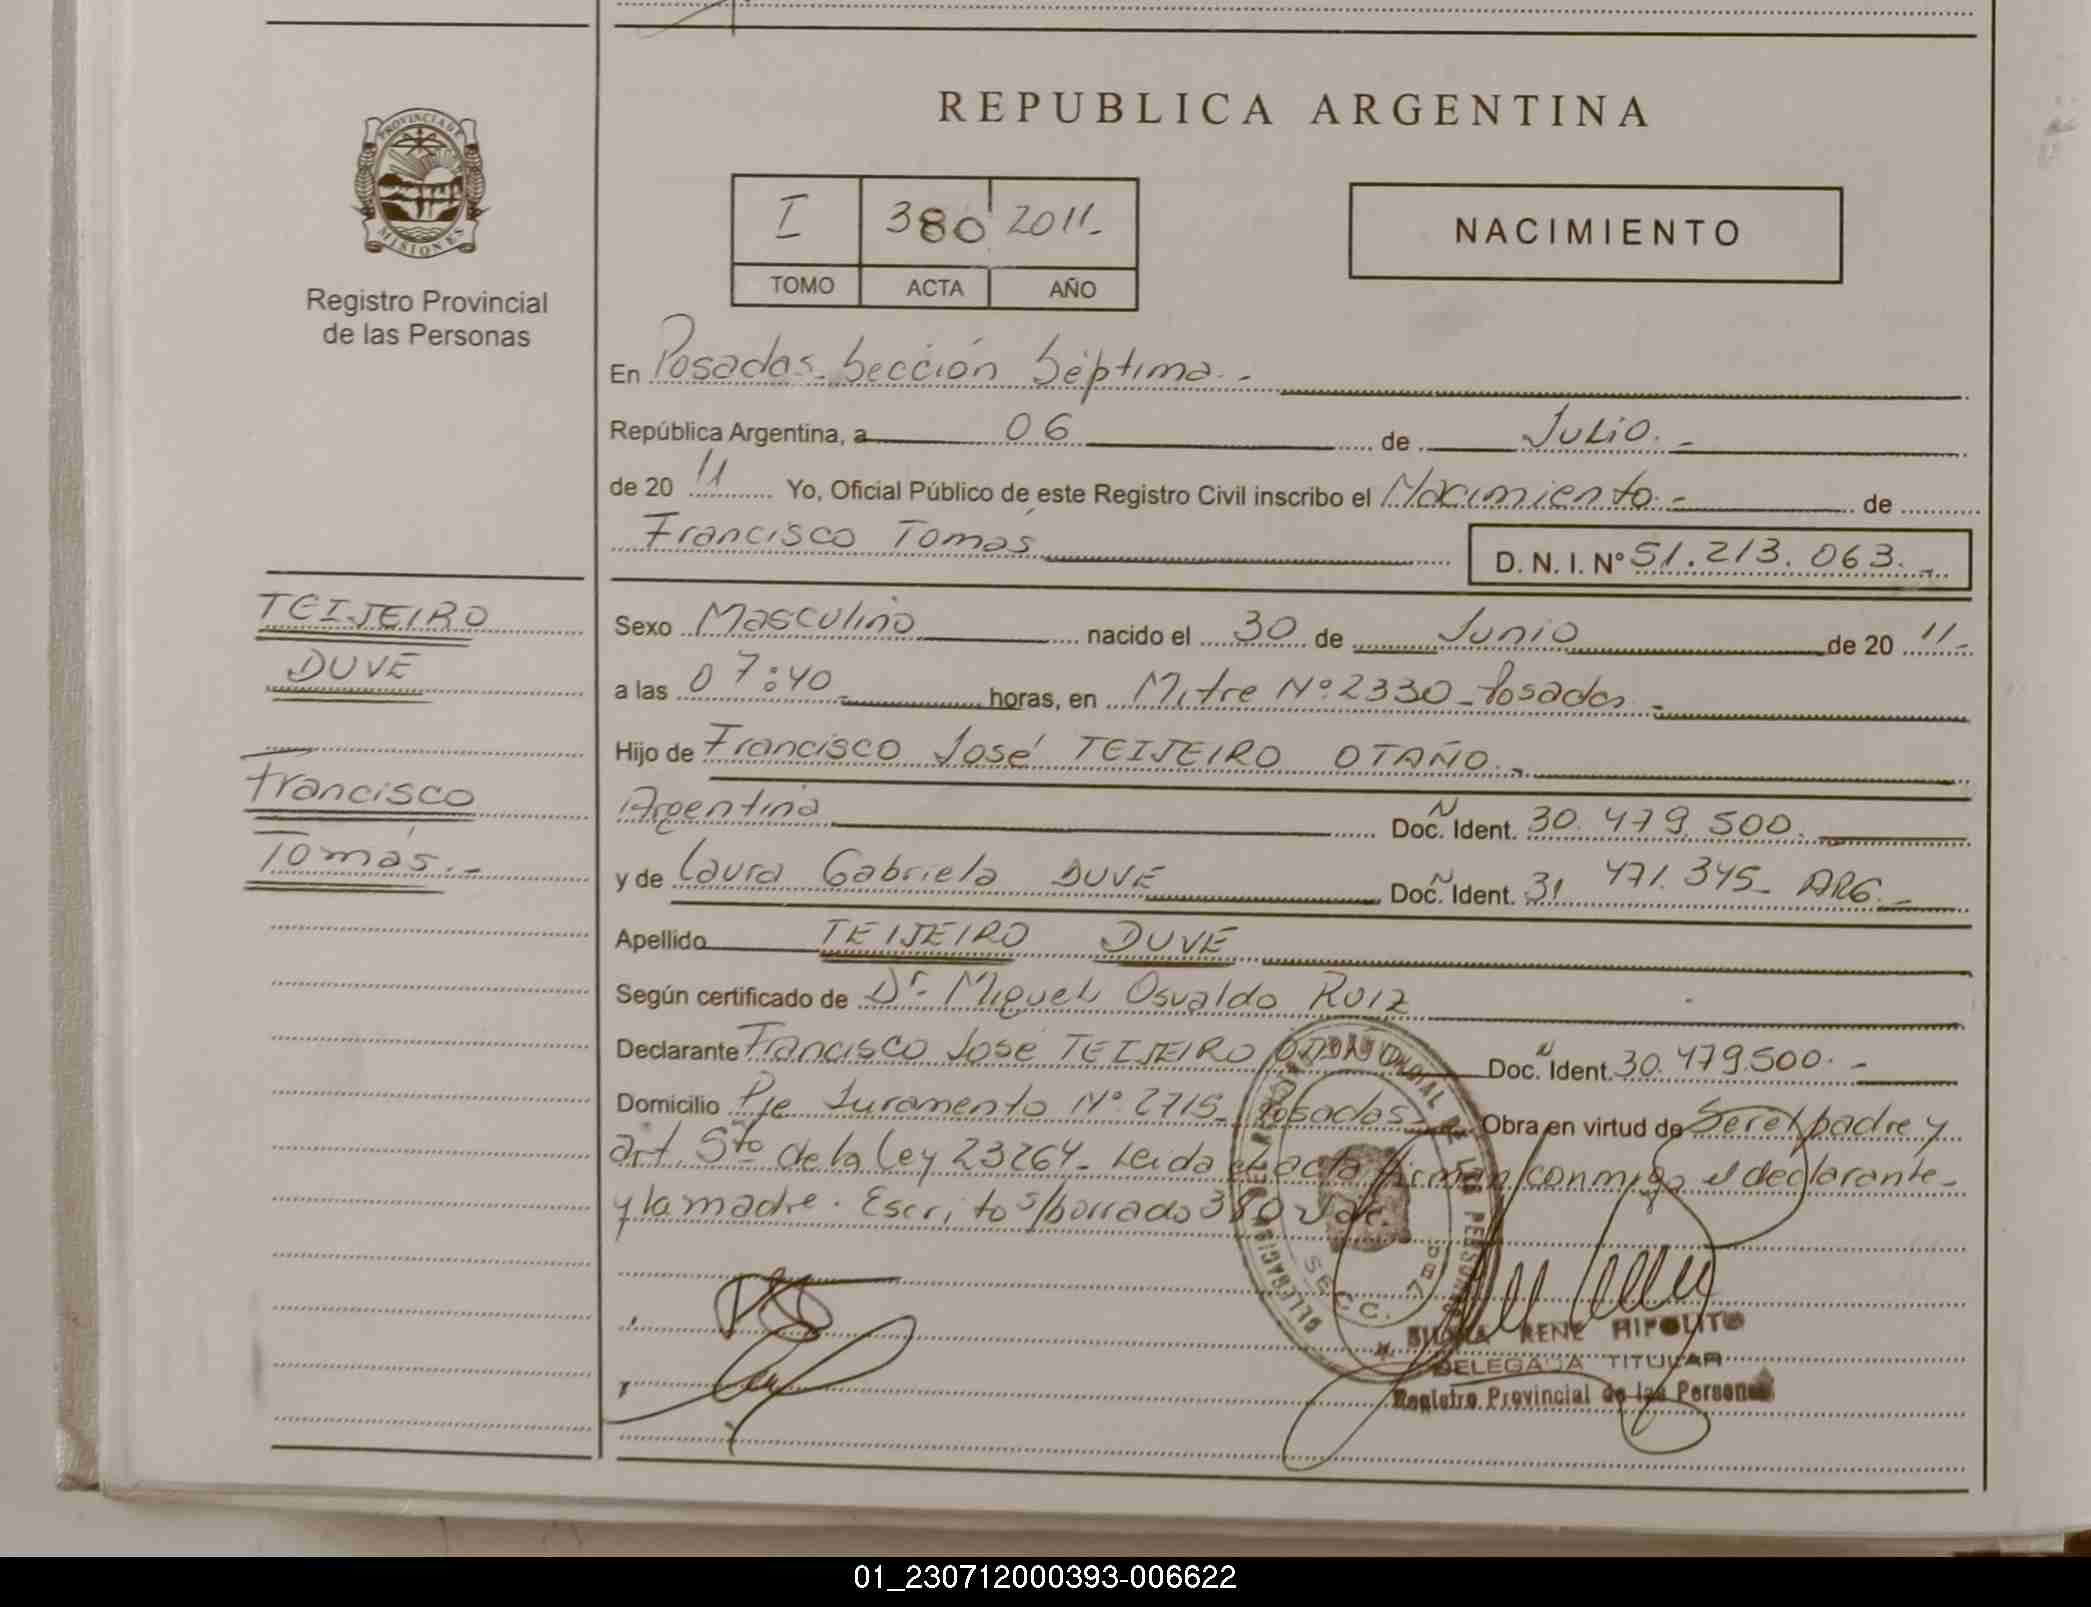 REPUBLICA ARGENTINA
PROVINCIA DE
MISIONES
Registro Provincial
de las Personas
I 380 2011.-
TOMO ACTA AÑO
NACIMIENTO
En Posadas. Sección Séptima.-
República Argentina, a 06 de Julio.-
de 20 11 Yo, Oficial Público de este Registro Civil inscribo el Nacimiento.- de
Francisco Tomás
D. N. I. Nº 51.213.063.-
TEIJEIRO
DUVE
Francisco
Tomás.-
Sexo Masculino nacido el 30 de Junio de 20 11.-
a las 07:40 horas, en Mitre Nº 2330 - Posadas.-
Hijo de Francisco José TEIJEIRO OTAÑO.-
Argentina Doc. Ident. 30.479.500.
y de Laura Gabriela DUVE Doc. Ident. 31.471.345- ARG.-
Apellido TEIJEIRO DUVE
Según certificado de Dr. Miguel Osvaldo Ruiz
Declarante Francisco José TEIJEIRO OTAÑO Doc. Ident. 30.479.500.-
Domicilio Pje Juramento Nº 2715- Posadas- Obra en virtud de Ser el padre y
art. 5to de la Ley 23264- Leida el acta firman conmigo el declarante-
y la madre. Escrito s/borrado 380 Vale.
DELEGACION
SECC. 7
RENE HIPOLITO
DELEGADA TITULAR
Registro Provincial de las Personas
01_230712000393-006622